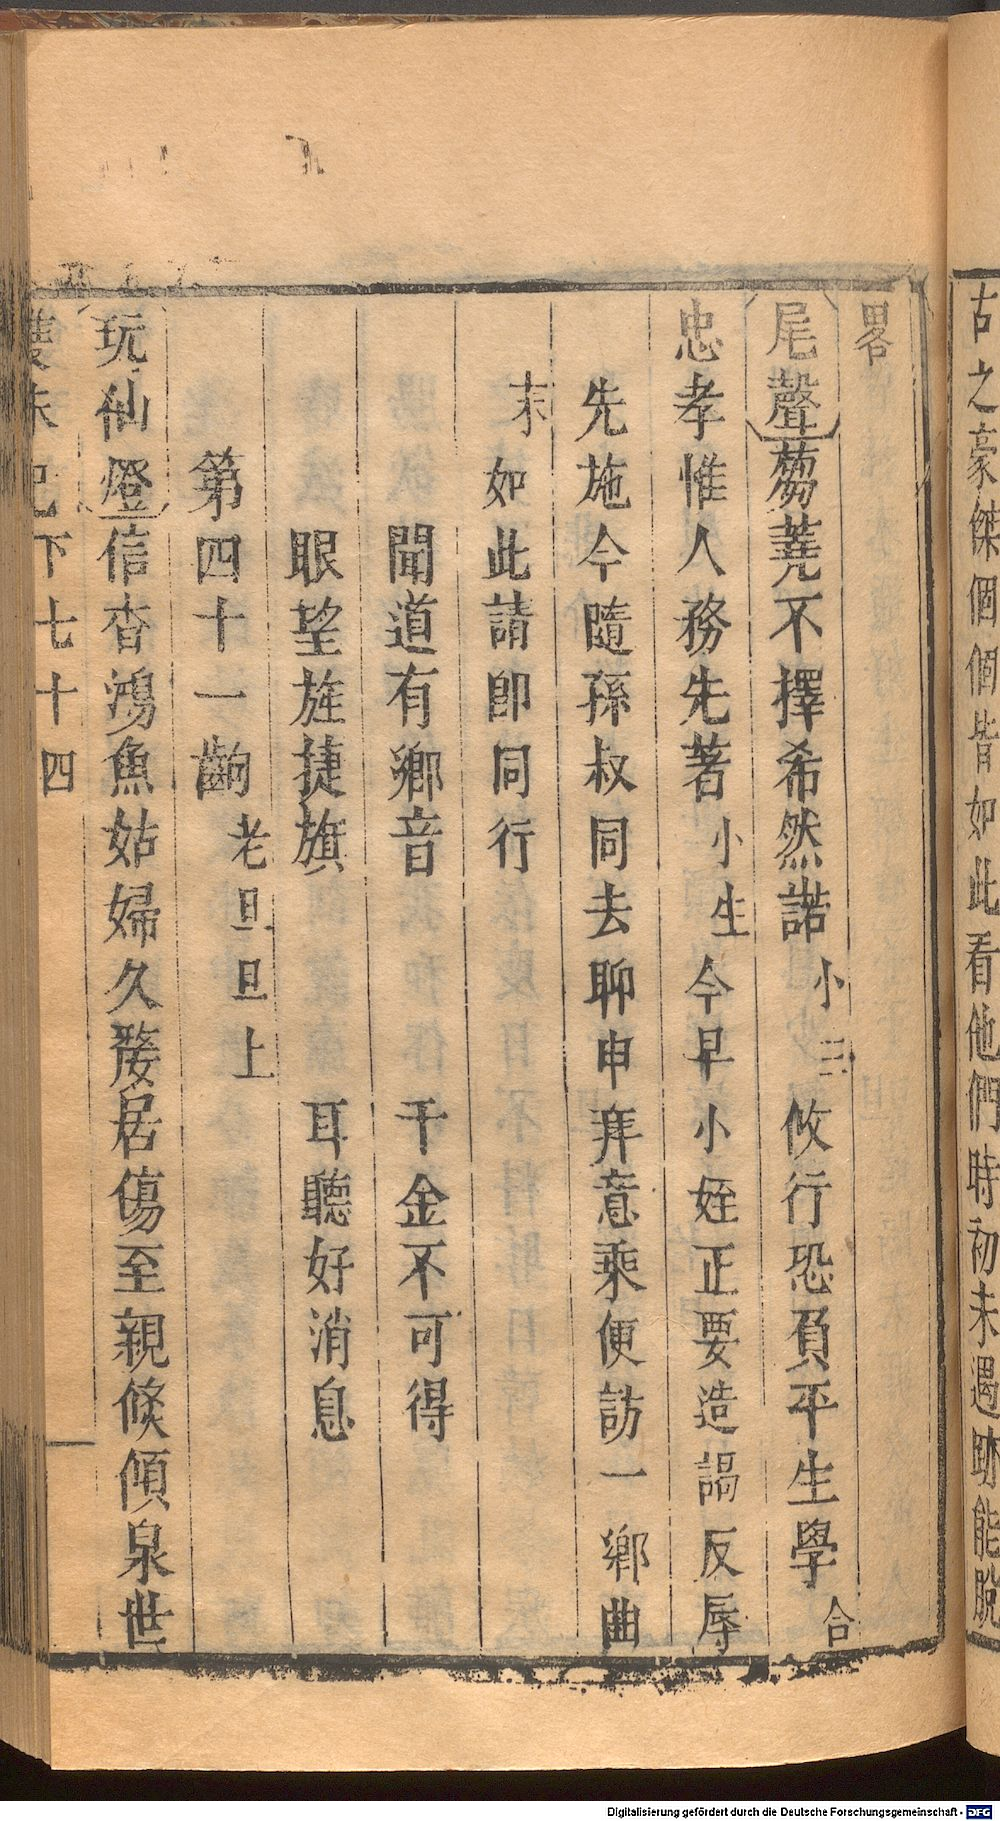 古之豪傑個個皆如此看他們時初未遇時能脫
畧
尾聲蒭蕘不擇希然諾小二攸行恐負平生學合
忠孝惟人務先著小生今早小姪正要造謁反辱
先施今隨孫叔同去聊申拜意乘便訪一鄉曲
末如此請即同行
聞道有鄉音千金不可得
眼望旌捷旗耳聽好消息
第四十一齣老旦旦上
玩仙燈信杳鴻魚姑婦久嫠居傷至親倐傾泉世
朱已下七十四
Digitalisierung gefördert durch die Deutsche Forschungsgemeinschaft - DFG